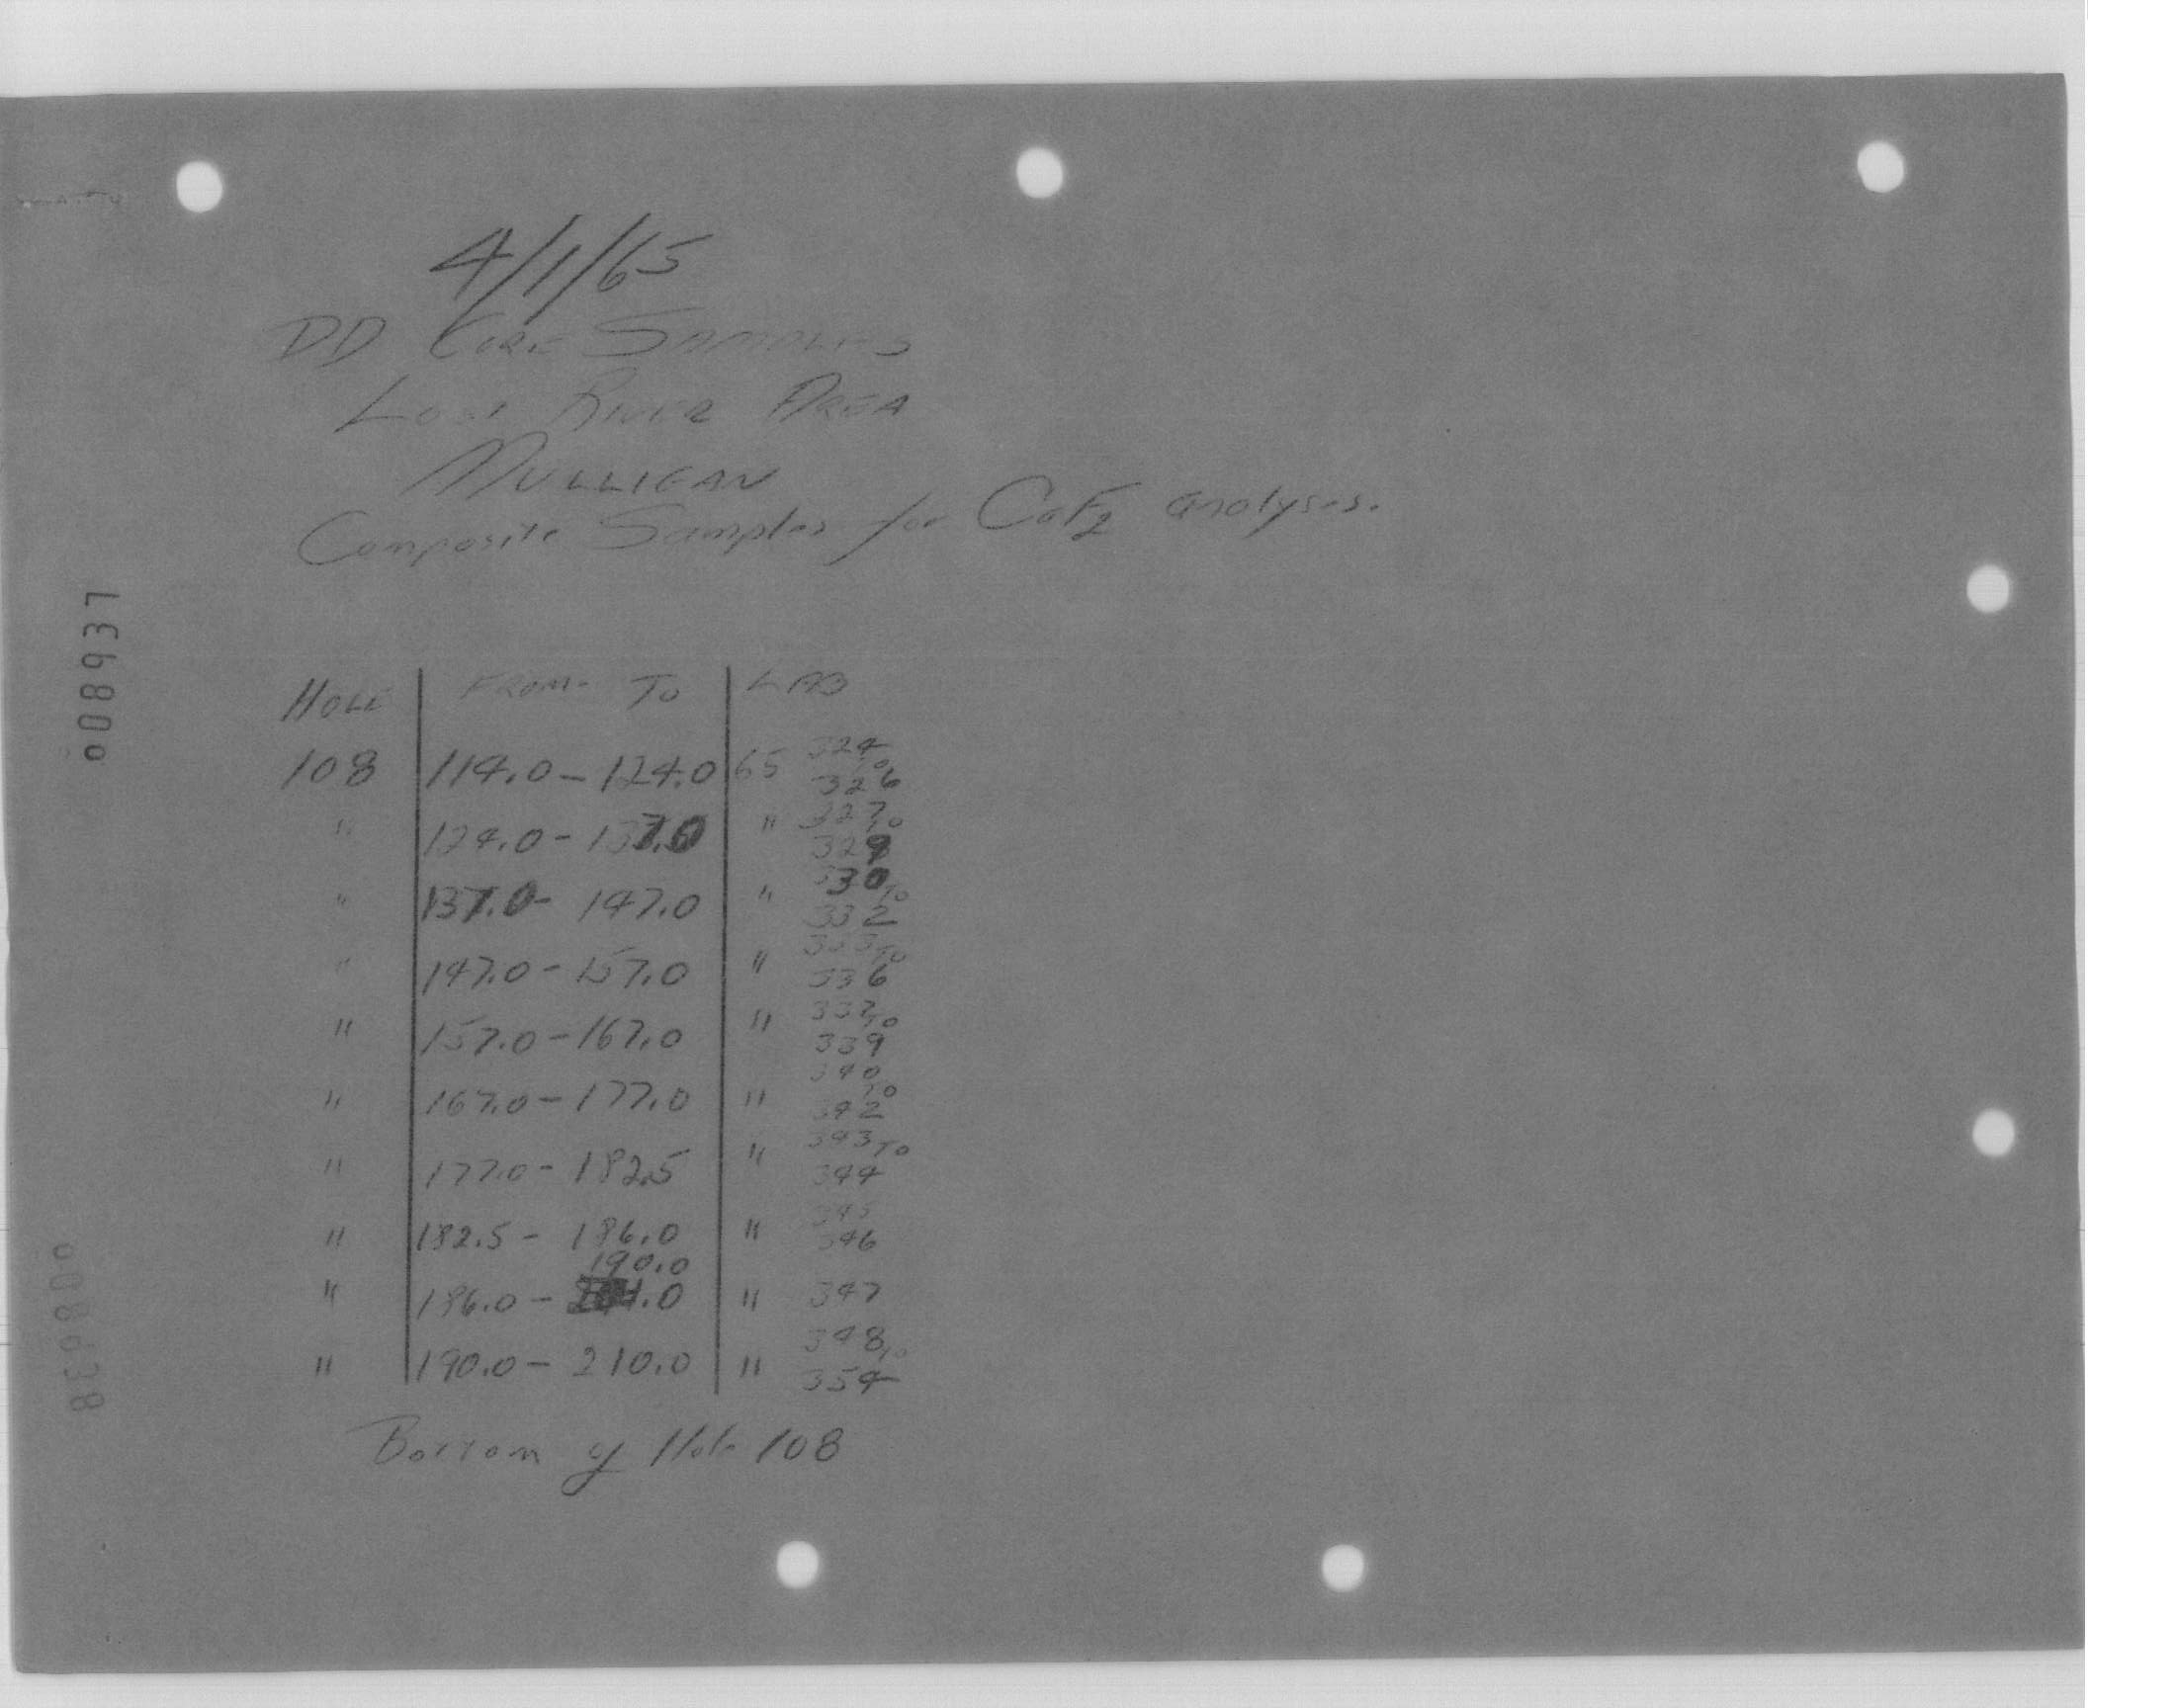 4/1/65
DD CORE SAMPLES
LOST RIVER AREA
MULLIGAN
Composite Samples for CaF2 analyses.
HOLE FROM - TO LAB
108 114.0 - 124.0 65 324 to 326
" 124.0 - 137.0 " 327 to 329
" 137.0 - 147.0 " 330 to 332
" 147.0 - 157.0 " 333 to 336
" 157.0 - 167.0 " 337 to 339
" 167.0 - 177.0 " 340 to 342
" 177.0 - 182.5 " 343 to 344
" 182.5 - 186.0 " 345 346
" 186.0 - 190.0 " 347
" 190.0 - 210.0 " 348 to 354
Bottom of Hole 108
008937